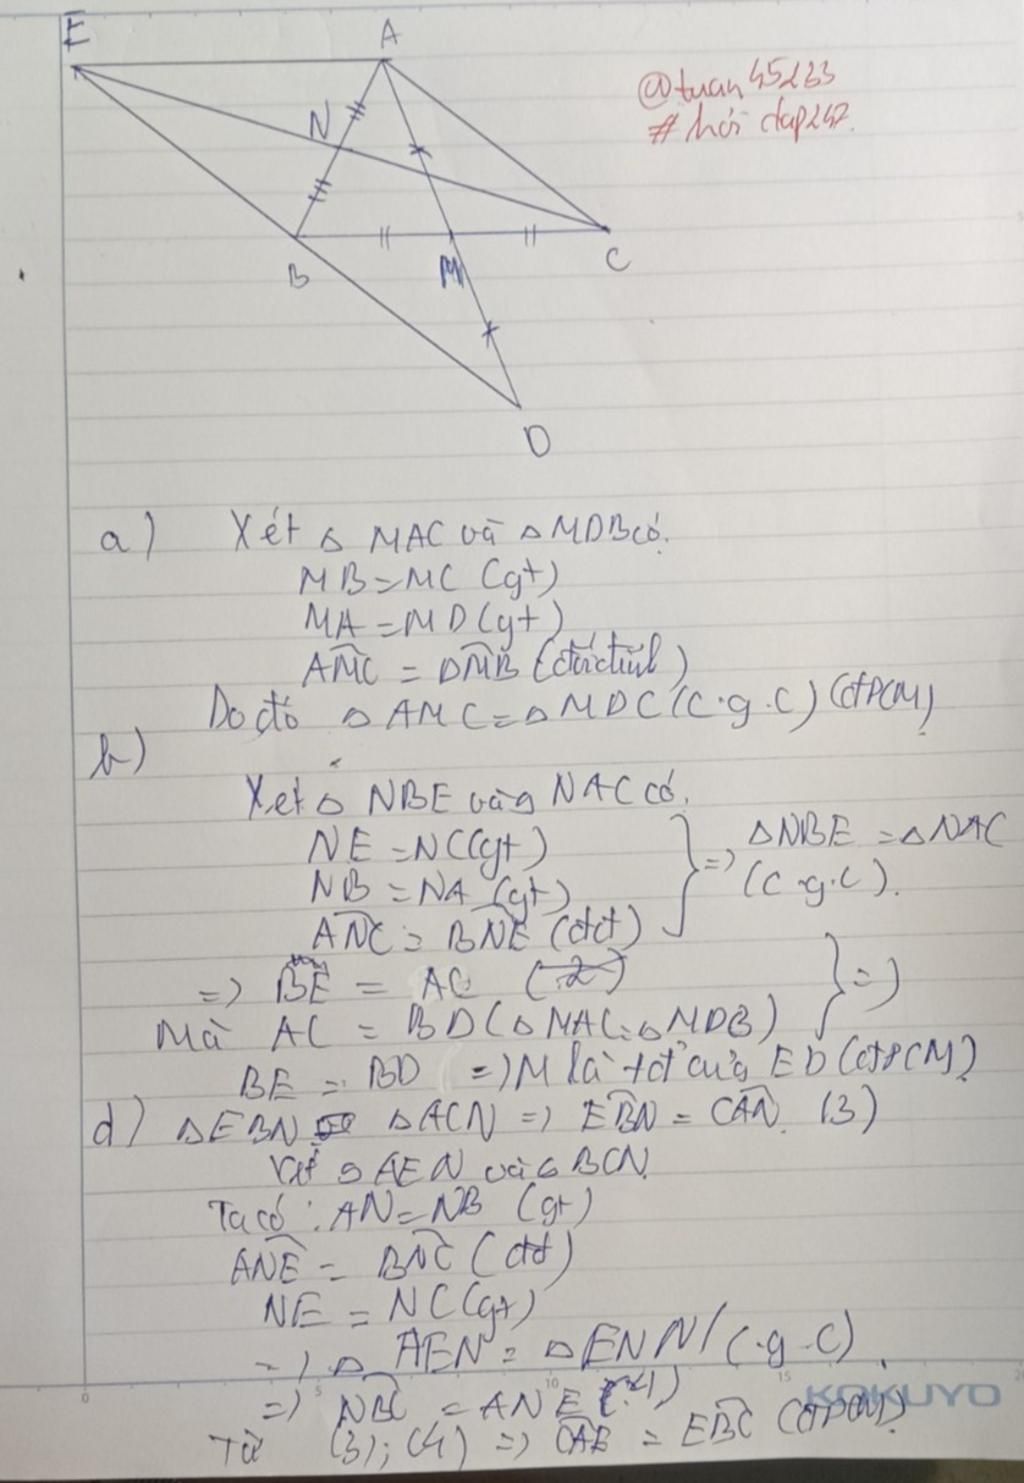 E
A
@tuan45233
# hỏi đap247.
N
B
M
C
D
a) Xét Δ MAC và Δ MDB có.
MB = MC (gt)
MA = MD (gt)
AMC = DMB (đối đỉnh)
Do đó Δ AMC = Δ MDC (c.g.c) (đPCM)
b)
Xét Δ NBE và Δ NAC có.
NE = NC (gt)
NB = NA (gt)
ANC = BNE (đđ)
} => ΔNBE = ΔNAC
(c.g.c).
=> BE = AC (2)
Mà AC = BD (Δ MAC = Δ MDB) } =>
BE = BD => M là tđ của ED (đPCM)
d) Δ EBN Δ ACN => EBN = CAN (3)
Xét Δ AEN và Δ BCN
Ta có: AN = NB (gt)
ANE = BNC (đđ)
NE = NC (gt)
=> Δ AEN = Δ ENN (c.g.c)
=> NBC = ANE (4)
Từ (3); (4) => CAB = EBC (đPCM)
0 5 10 15 20
KOKUYO